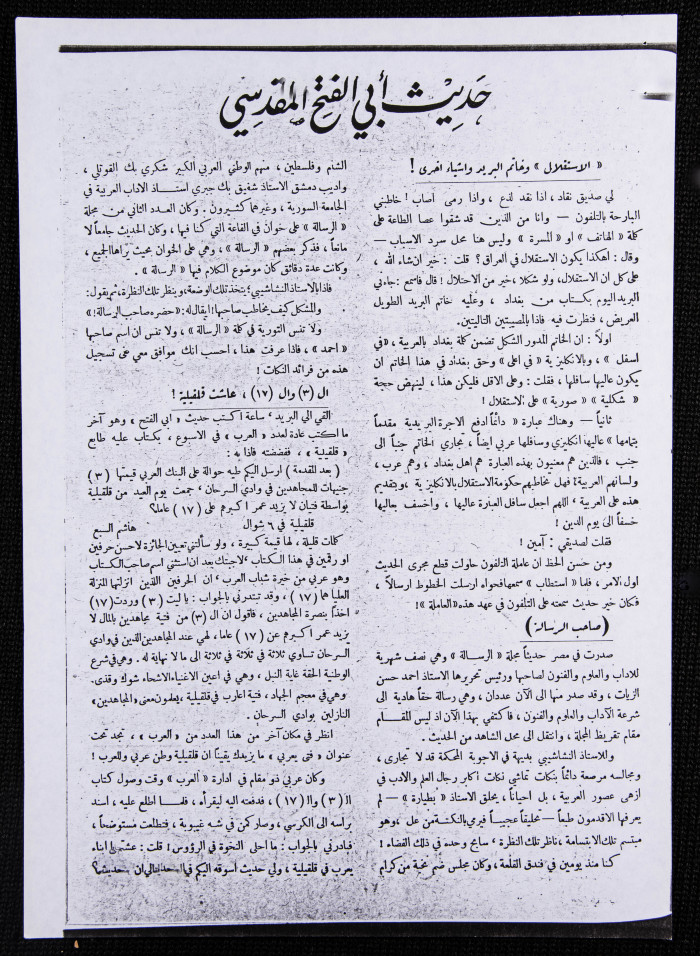 حديث أبي الفتح المقدسي
« الاستقلال » وخاتم البريد واشياء اخرى !
لي صديق نقاد ، اذا نقد لذع ، واذا رمى أصاب ! خاطبني
البارحة بالتلفون — وانا من الذين قد شقوا عصا الطاعة على
كلة « الهاتف » او « المسرة » وليس هنا محل سرد الاسباب —
وقال : اهكذا يكون الاستقلال في العراق ؟ قلت : خير ان شاء الله ،
على كل ان الاستقلال ، ولو شكلا ، خير من الاحتلال ! قال فاسمع : جاءني
البريد اليوم بكتاب من بغداد ، وعليه خاتم البريد الطويل
العريض ، فنظرت فيه فاذا بالمصيبتين التاليتين .
اولاً : ان الخاتم المدور الشكل تضمن كلة بغداد بالعربية ، « في
اسفل » ، وبالانكليزية « في اعلى » وحق بغداد في هذا الخاتم ان
يكون عاليها سافلها ، فقلت : وعلى الاقل فليكن هذا ، لينهض حجة
« شكلية » « صورية » على الاستقلال !
ثانياً — وهناك عبارة « دائماً ادفع الاجرة البريدية مقدماً
بتمامها » عاليها انكليزي وسافلها عربي ايضاً ، مجاري الخاتم جنباً الى
جنب ، فالذين هم معنيون بهذه العبارة هم اهل بغداد ، وهم عرب ،
ولسانهم العربية ؛ فهل تخاطبهم حكومة الاستقلال بالانكليزية ، وبتقديم
هذه على العربية ، اللهم اجعل سافل العبارة عاليها ، واخسف بعاليها
خسفاً الى يوم الدين !
فقلت لصديقي : آمين !
ومن حسن الحظ ان عاملة التلفون حاولت قطع مجرى الحديث
اول الامر ، فلما « استطاب » سمعها فحواه ارسلت الخطوط ارسالاً ،
فكان خير حديث سمعته على التلفون في عهد هذه « العاملة » !
( صاحب الرسالة )
صدرت في مصر حديثاً مجلة « الرسالة » وهي نصف شهرية
للآداب والعلوم والفنون لصاحبها ورئيس تحريرها الاستاذ احمد حسن
الزيات ، وقد صدر منها الى الآن عددان ، وهي رسالة حقاً هادية الى
شرعة الآداب والعلوم والفنون ، فاكتفي بهذا الآن اذ ليس المقام
مقام تقريظ المجلة ، وانتقل الى محل الشاهد من الحديث .
وللاستاذ النشاشيبي بديهة في الاجوبة المحكمة قد لا تجارى ،
ومجالسه مرصعة دائماً بنكات تماشي نكات اكابر رجال العلم والادب في
ازهى عصور العربية ، بل احياناً ، يحلق الاستاذ « بطيارة » — لم
يعرفها الاقدمون طبعاً — تحليقاً عجيباً فيرمي بالنكتة من عل ، وهو
مبتسم تلك الابتسامة ، ناظر تلك النظرة ، سابح وحده في ذلك الفضاء !
كنا منذ يومين في فندق القلعة ، وكان مجلس ضم نخبة من كرام
الشام وفلسطين ، منهم الوطني العربي الكبير شكري بك القوتلي ،
واديب دمشق الاستاذ شفيق بك جبري استاذ الاداب العربية في
الجامعة السورية ، وغيرهما كثيرون . وكان العدد الثاني من مجلة
« الرسالة » على خوان في القاعة التي كنا فيها ، وكان الحديث جامعاً لا
مانعاً ، فذكر بعضهم « الرسالة » ، وهي على الخوان بحيث يراها الجميع ،
وكانت عدة دقائق كان موضوع الكلام فيها « الرسالة » .
فاذا بالاستاذ النشاشيبي ؛ يتخذ تلك الوضعة ، وينظر تلك النظرة ، ثم يقول :
والمشكل كيف يخاطب صاحبها ! ايقال له : « حضره صاحب الرسالة ! »
ولا تنس التورية في كلة « الرسالة » ، ولا تنس ان اسم صاحبها
« احمد » ، فاذا عرفت هذا ، احسب انك موافق معي على تسجيل
هذه من فرائد النكات !
ال (٣) وال (١٧) ، عاشت قلقيلية !
القي الي البريد ، ساعة اكتب حديث « ابي الفتح » ، وهو آخر
ما اكتب عادة لعدد « العرب » في الاسبوع ، بكتاب عليه طابع
« قلقيلية » ، ففضضته فاذا به :
( بعد المقدمة ) ارسل اليكم طيه حوالة على البنك العربي قيمتها (٣)
جنيهات للمجاهدين في وادي السرحان ، جمعت يوم العيد من قلقيلية
بواسطة فتيان لا يزيد عمر اكبرهم على (١٧) عاما ؟
قلقيلية في ٦ شوال هاشم السبع
كلمات قليلة ، لها قيمة كبيرة ، ولو سألتني تعيين الجائزة لاحسن حرفين
او رقمين في هذا الكتاب ، لاجبتك بعد ان استثني اسم صاحب الكتاب
وهو عربي من خيرة شباب العرب ، ان الحرفين اللذين انزلتها المنزلة
العليا هما (١٧) ، وقد تبتدرني بالجواب : يا ليت (٣) وردت (١٧)
اخذاً بنصرة المجاهدين ، فاقول ان ال (٣) من فتية مجاهدين بالمال لا
يزيد عمر اكبرهم عن (١٧) عاما ، لهي عند المجاهدين الذين في وادي
السرحان تساوي ثلاثة في ثلاثة في ثلاثة الى ما لا نهاية له . وهي في شرع
الوطنية الحقة غاية النبل ، وهي في اعين الاغنياء الاشحاء شوك وقذى .
وهي في معجم الجهاد ، فتية اعارب في قلقيلية ، يعلمون معنى « المجاهدين »
النازلين بوادي السرحان .
انظر في مكان آخر من هذا العدد من « العرب » ، تجد تحت
عنوان « فتى يعربي » ما يزيدك يقيناً ان قلقيلية وطن عربي وللعرب !
وكان عربي ذو مقام في ادارة « العرب » وقت وصول كتاب
ال (٣) وال (١٧) ، فدفعته اليه ليقرأه ، فلما اطلع عليه ، اسند
برأسه الى الكرسي ، وصار كمن في شبه غيبوبة ، فتطلعت مستوضحاً ،
فبادرني بالجواب : ما احلى النخوة في الرؤوس ! قلت : عشتم يا ابناء
يعرب في قلقيلية ، ولي حديث اسوقه اليكم في